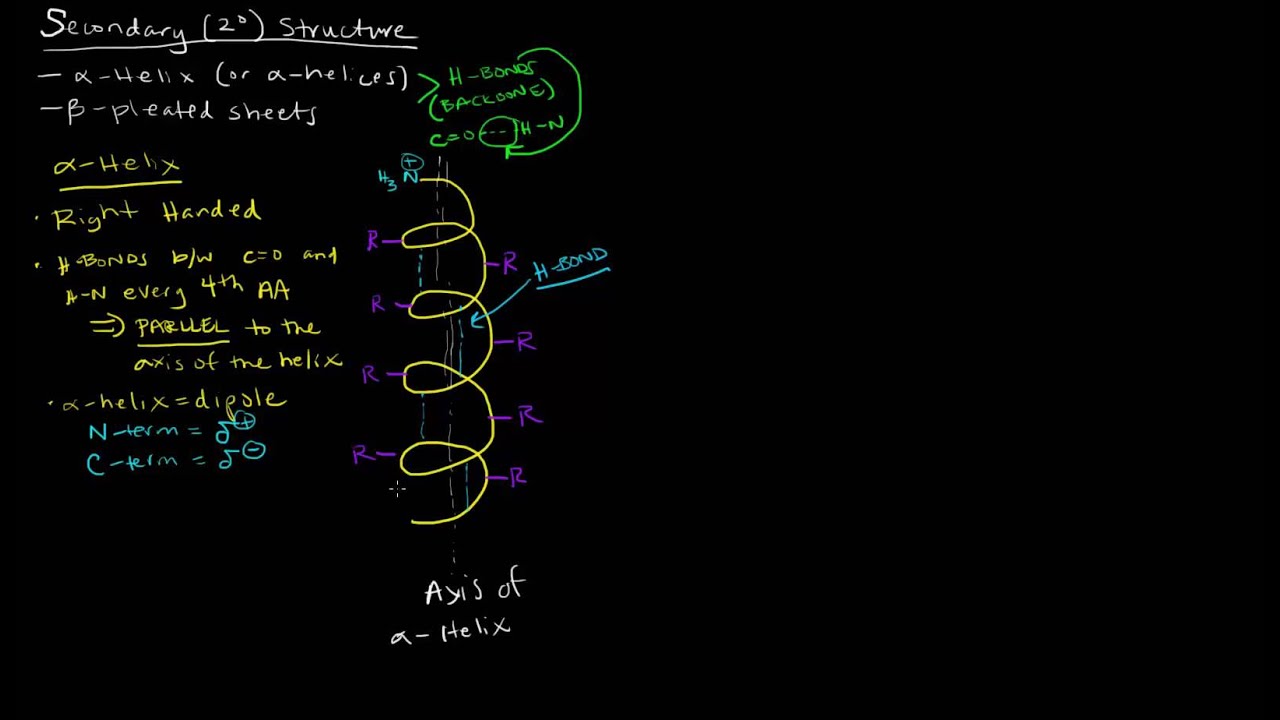 Secondary (2°) Structure
- α-Helix (or α-helices)
- β-pleated sheets
H-BONDS
(BACKOONE)
C=O---H-N
α-Helix
• Right Handed
• H-BONDS b/w C=O and
H-N every 4th AA
⇒ PARLLEL to the
axis of the helix
• α-helix = dipole
N-term = δ⊕
C-term = δ⊖
H₃N⊕
R
R
R
R
R
R
R
R
H-BOND
Axis of
α-Helix